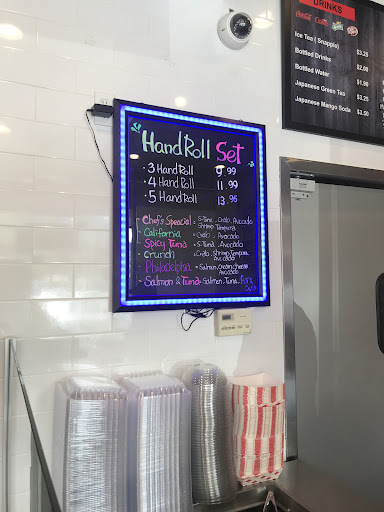 DRINKS
Ice Tea ( Snapple) $3.25
Bottled Drinks $2.00
Bottled Water $1.90
Japanese Green Tea $3.25
Japanese Mango Soda $3.50
HandRoll Set
· 3 HandRoll 9.99
· 4 HandRoll 11.99
· 5 HandRoll 13.95
Chef's Speacial = S-Tuna, Crab, Avocado
Shrimp Tempura
California = Crab, Avocado
Spicy Tuna = S-Tuna, Avocado
Crunch = Crab, Shrimp Tempura
Avocado
Philadelphia = Salmon, Cream cheese
Avocado
Salmon & Tuna = Salmon, Tuna,